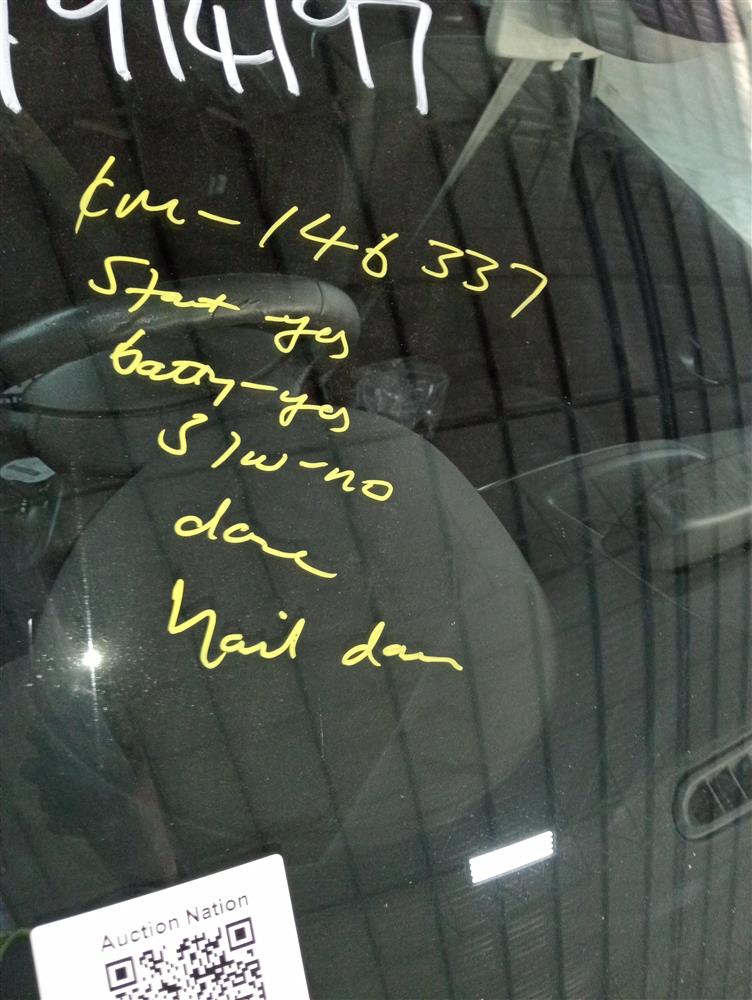 9/4/97
km - 146337
Start - yes
batty - yes
S/w - no
done
hail dam
Auction Nation